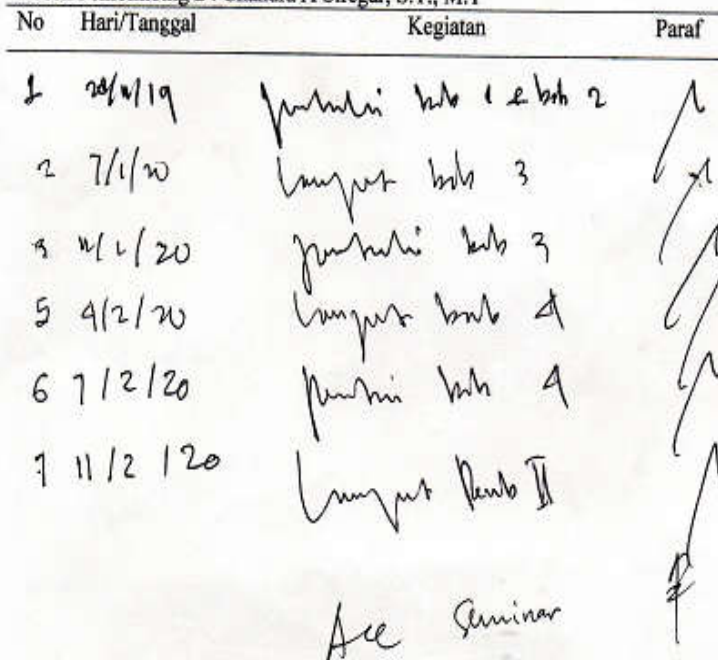 No Hari/Tanggal Kegiatan Paraf
1 /19 bab 1 & bab 2
2 7/1/20 Lanjut bab 3
3 /20 perbaiki bab 3
5 4/2/20 Lanjut bab 4
6 7/2/20 bab 4
7 11/2/20 Lanjut Pemb II
Acc Seminar